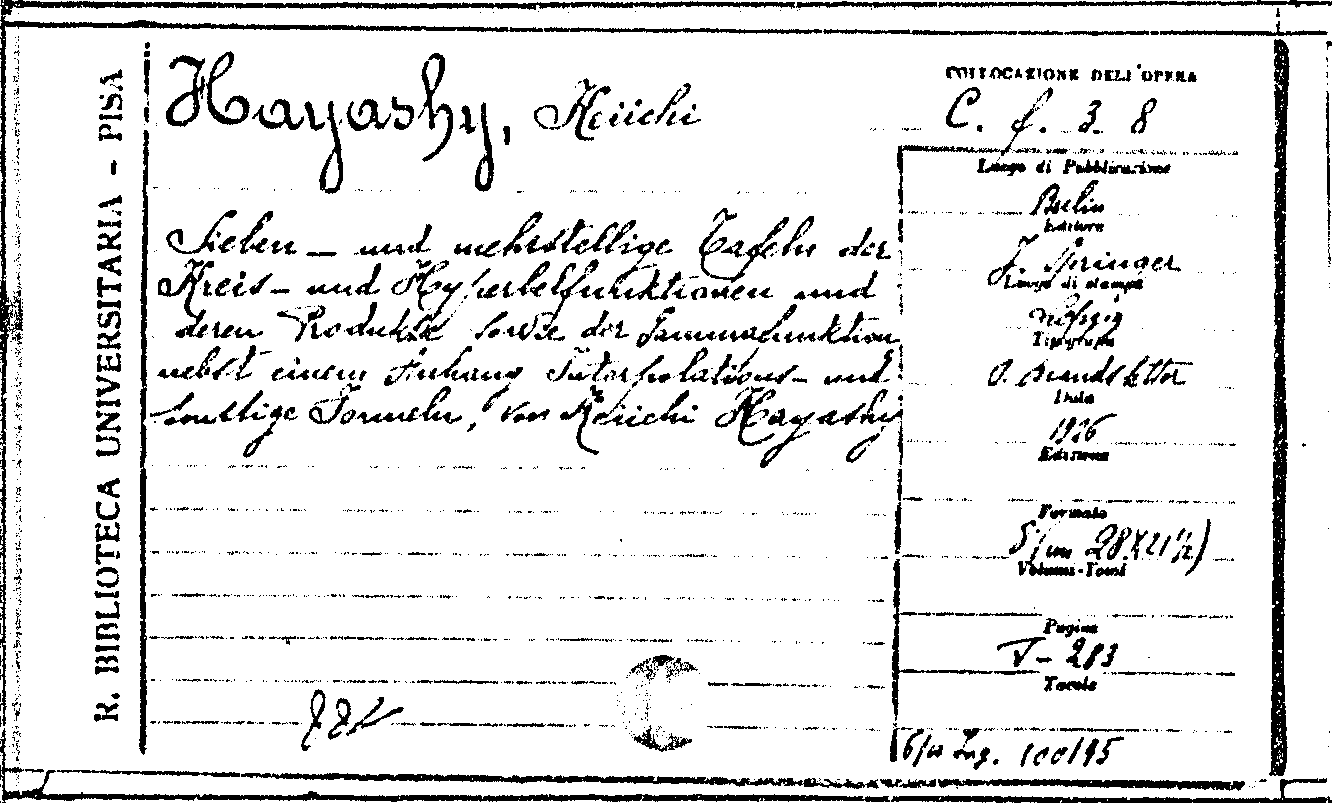 R. BIBLIOTECA UNIVERSITARIA - PISA
Hayashy, Keiichi
Sieben - und mehrstellige Tafeln der
Kreis - und Hyperbelfunktionen und
deren Produkte sowie der Gammafunktion
nebst einem Anhang Interpolations - und
sonstige Formeln, von Keiichi Hayashy
COLLOCAZIONE DELL'OPERA
C. f. 3. 8
Luogo di Pubblicazione
Berlin
Editore
J. Springer
Luogo di stampa
Tipografia
O. Brandstetter
Data
1926
Edizione
Formato
(28X21½)
Volumi-Tomi
Pagine
V - 283
Tavole
Ing. 100195